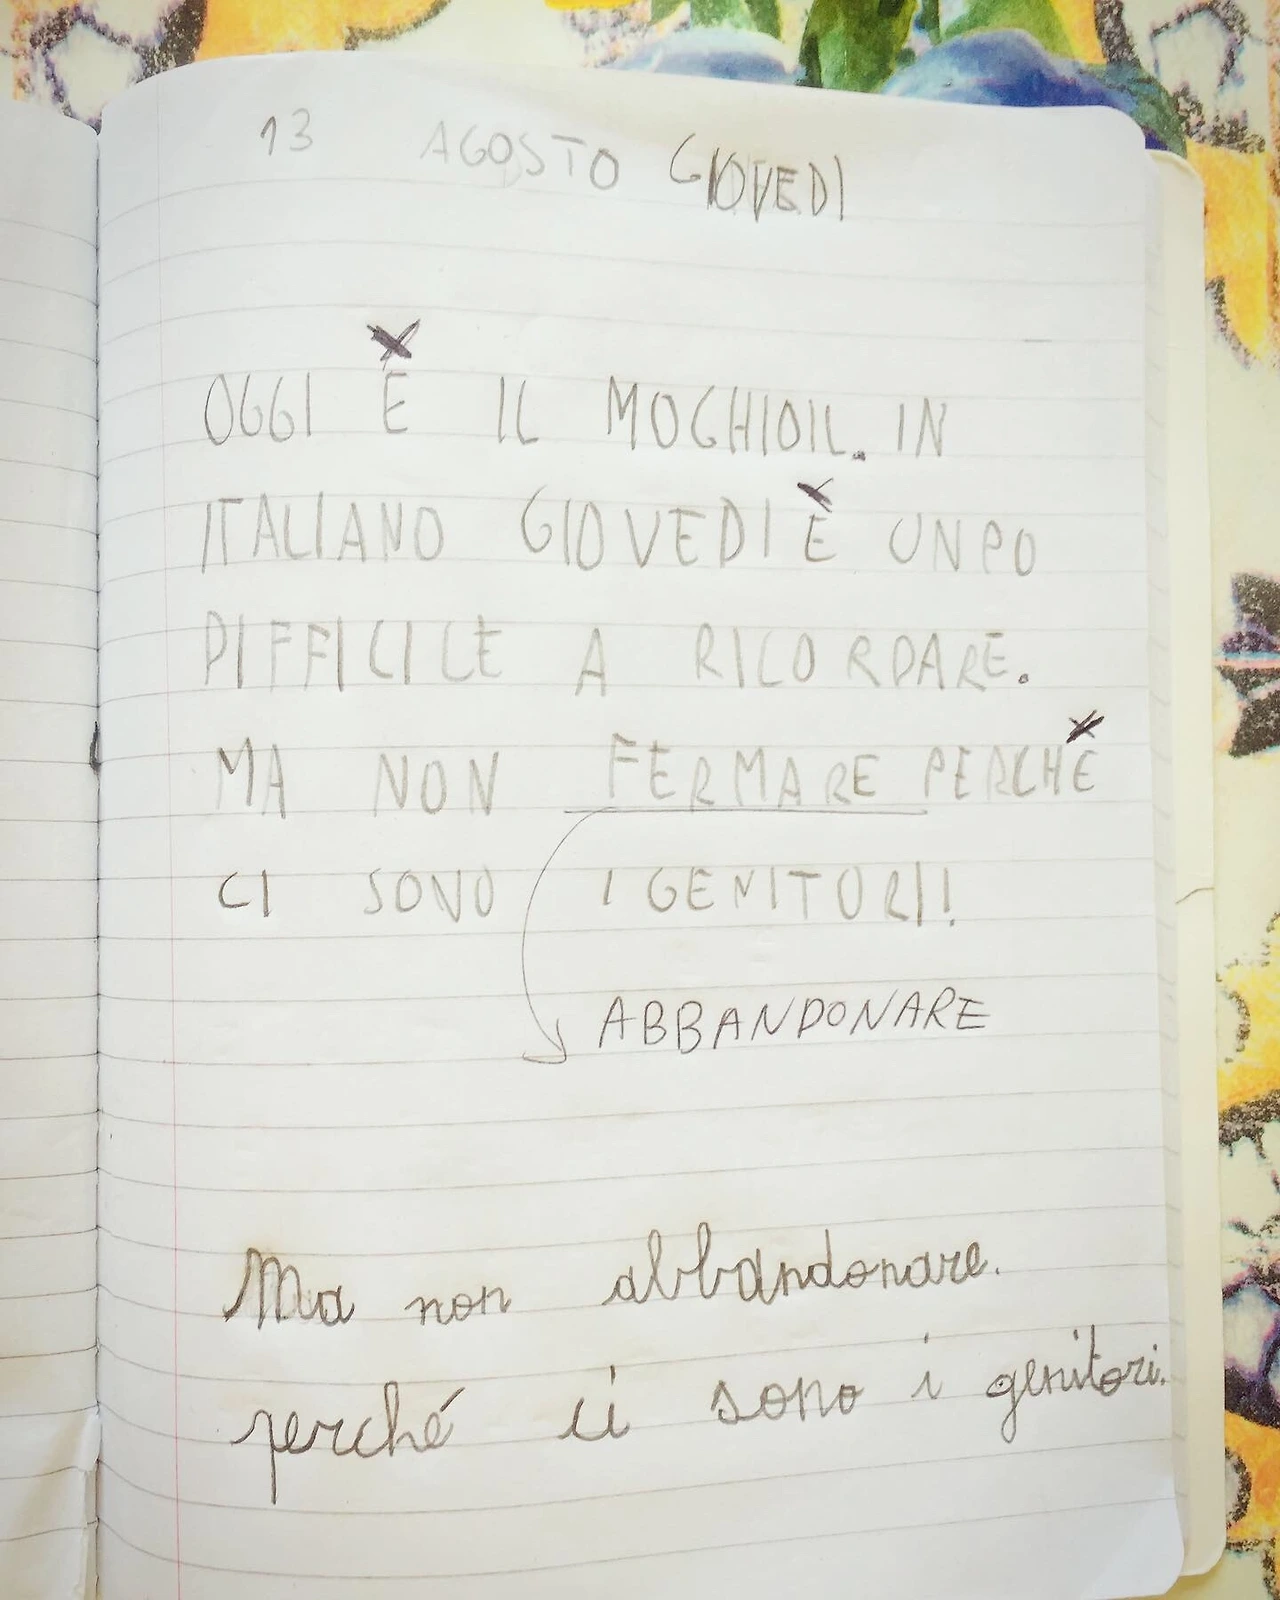 13 AGOSTO GIOVEDI
OGGI È IL MOGHIOIL. IN
ITALIANO GIOVEDI È UNPO
DIFFICILE A RICORDARE.
MA NON FERMARE PERCHÉ
CI SONO I GENITORI!
ABBANDONARE
Ma non abbandonare.
perché ci sono i genitori.